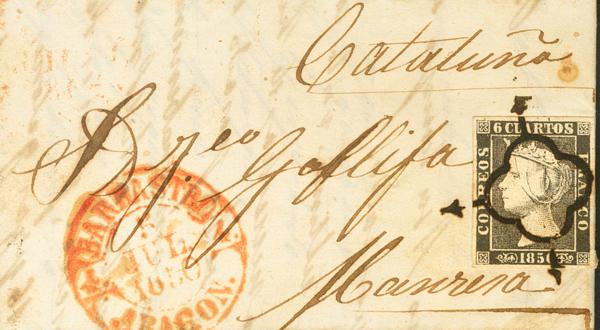 Cataluña
Dn Fco Gallifa
Manresa
6 CUARTOS
CORREOS
FRANCO
1850
BARBASTRO
6
JUL
1850
ARAGON.